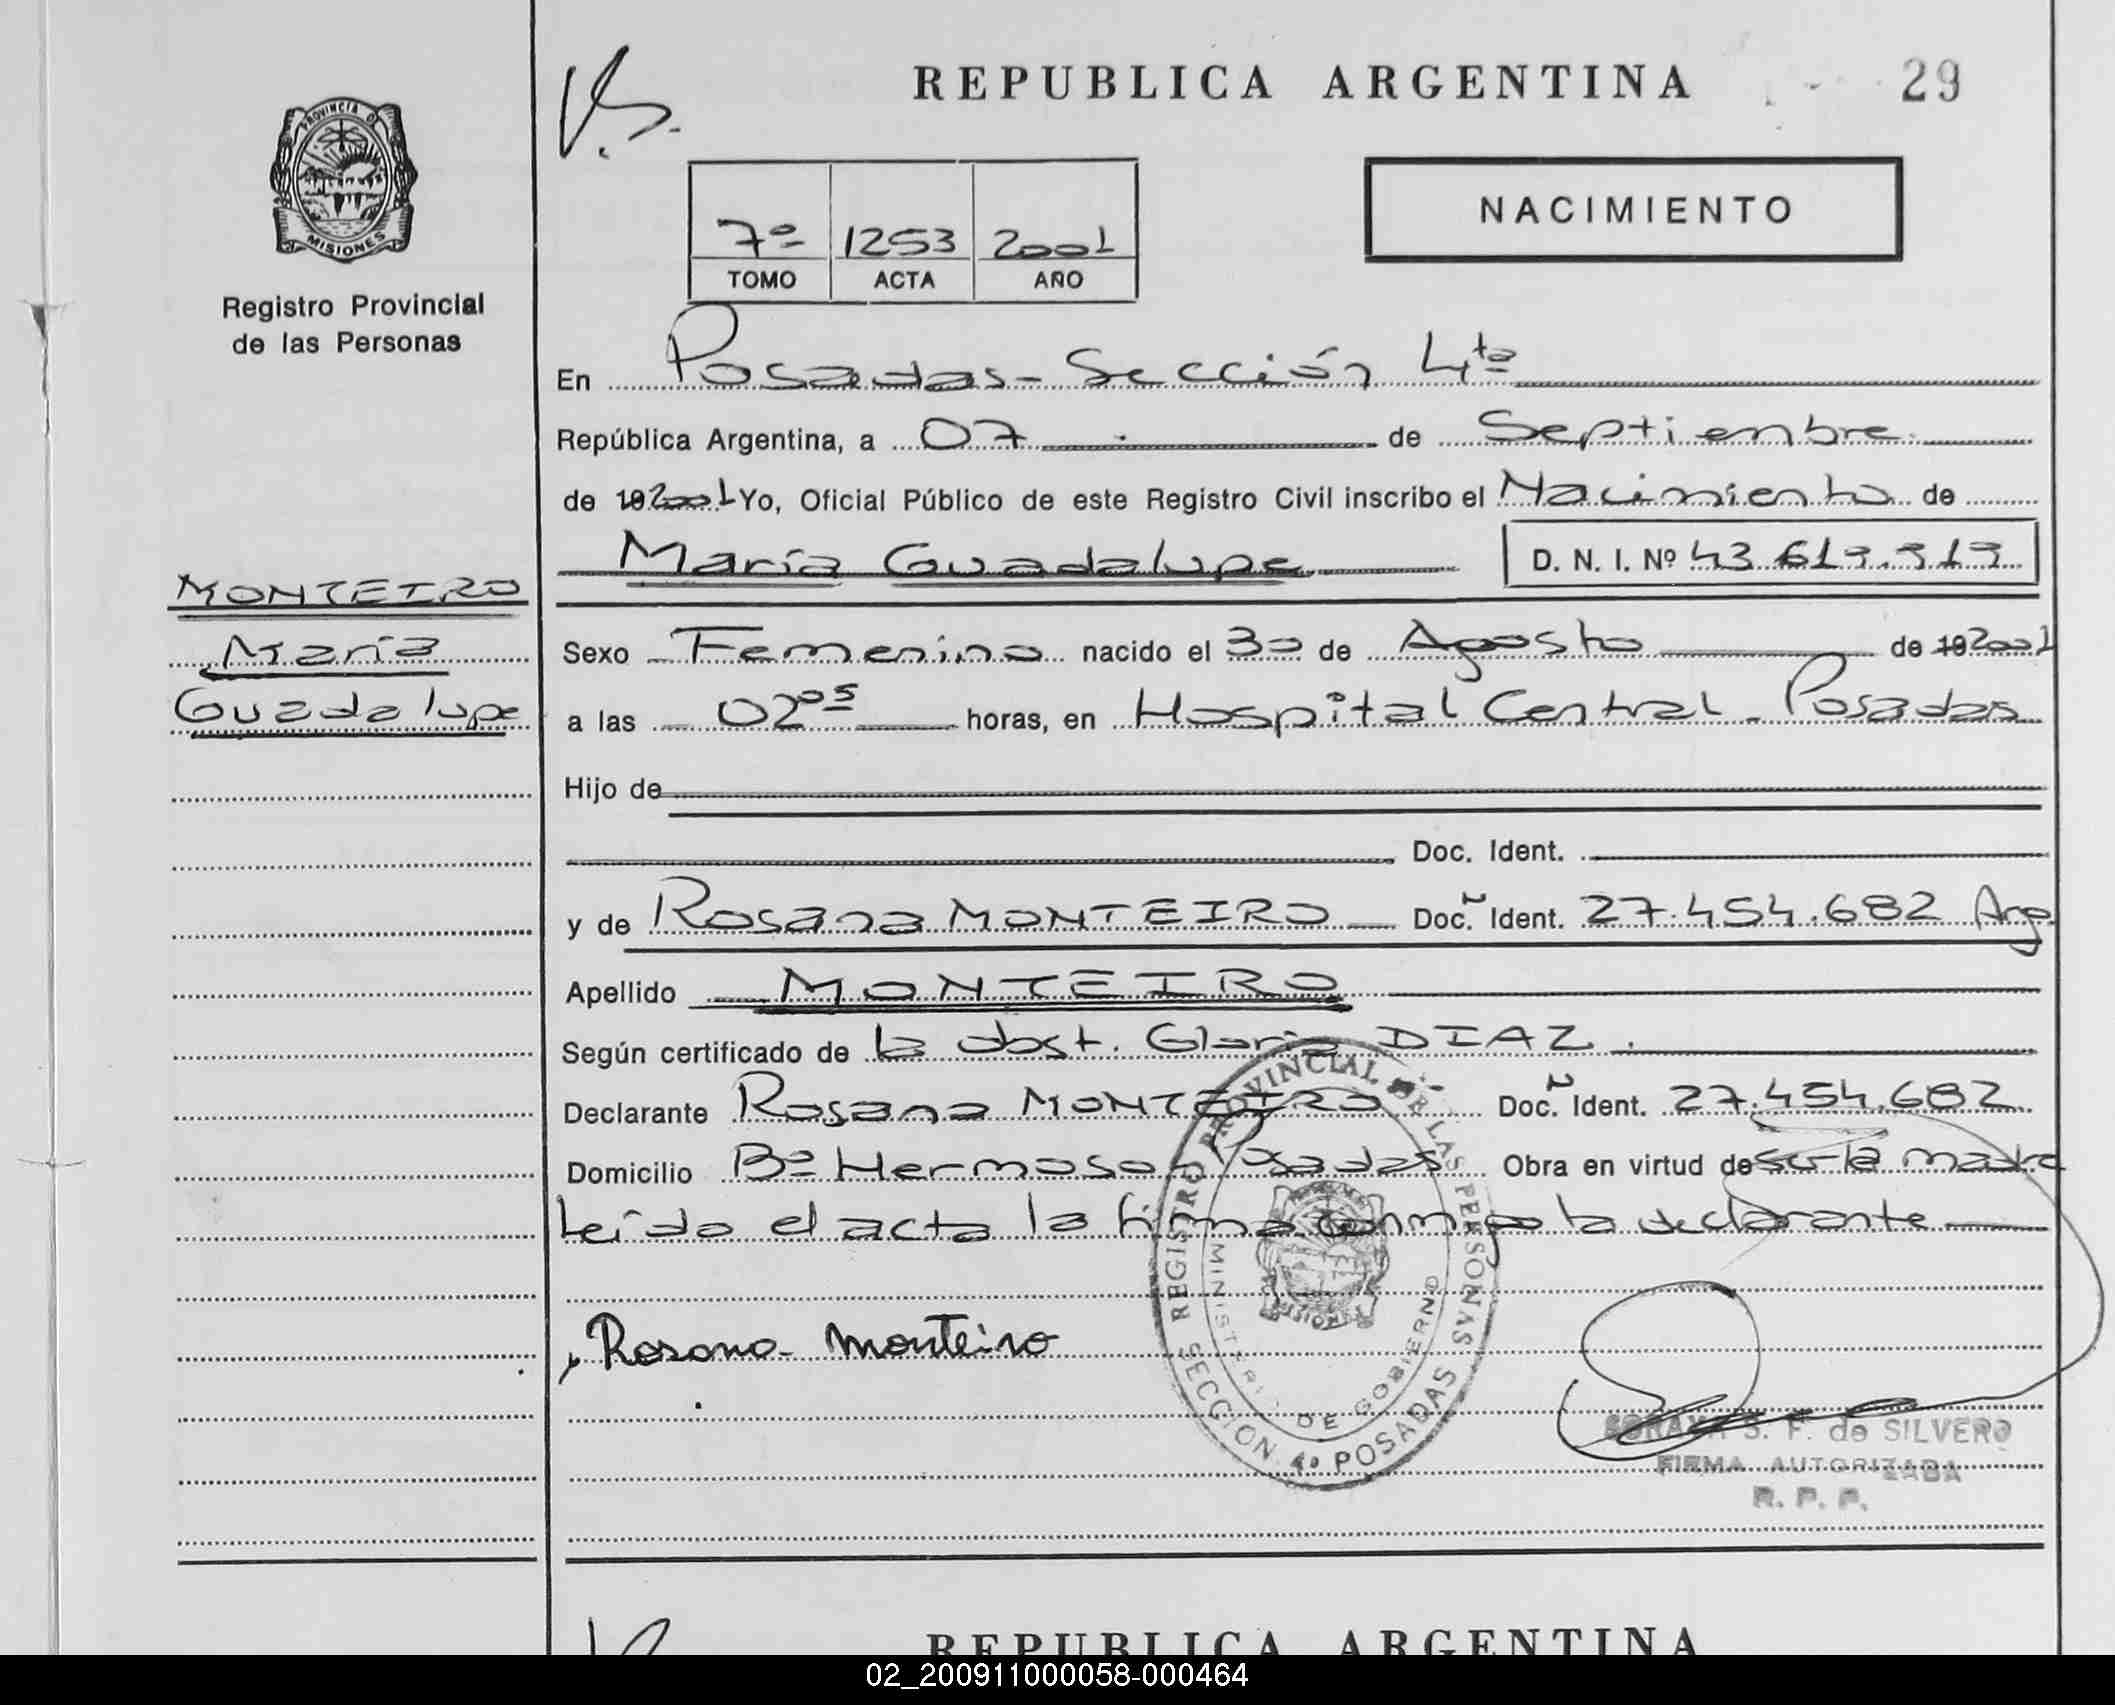 REPUBLICA ARGENTINA
29
PROVINCIA D
MISIONES
Registro Provincial
de las Personas
7º 1253 2001
TOMO ACTA AÑO
NACIMIENTO
En Posadas - Sección 4ta
República Argentina, a 07 de Septiembre
de 19 2001 Yo, Oficial Público de este Registro Civil inscribo el Nacimiento de
María Guadalupe D. N. I. Nº 43.619.919
MONTEIRO
María
Guadalupe
Sexo Femenino nacido el 30 de Agosto de 19 2001
a las 02 05 horas, en Hospital Central - Posadas
Hijo de
Doc. Ident.
y de Rosana MONTEIRO Doc. Ident. 27.454.682 Arg.
Apellido MONTEIRO
Según certificado de la obst. Gloria DIAZ.
Declarante Rosana MONTEIRO Doc. Ident. 27.454.682
Domicilio Bº Hermoso - Posadas Obra en virtud de ser la madre
Leído el acta la firma conmigo la declarante
Rosana Monteiro
REGISTRO PROVINCIAL DE LAS PERSONAS
MINISTERIO DE GOBIERNO
SECCION 4º POSADAS
SORAYA S. F. de SILVERO
FIRMA AUTORIZADA
R. P. P.
REPUBLICA ARGENTINA
02_200911000058-000464